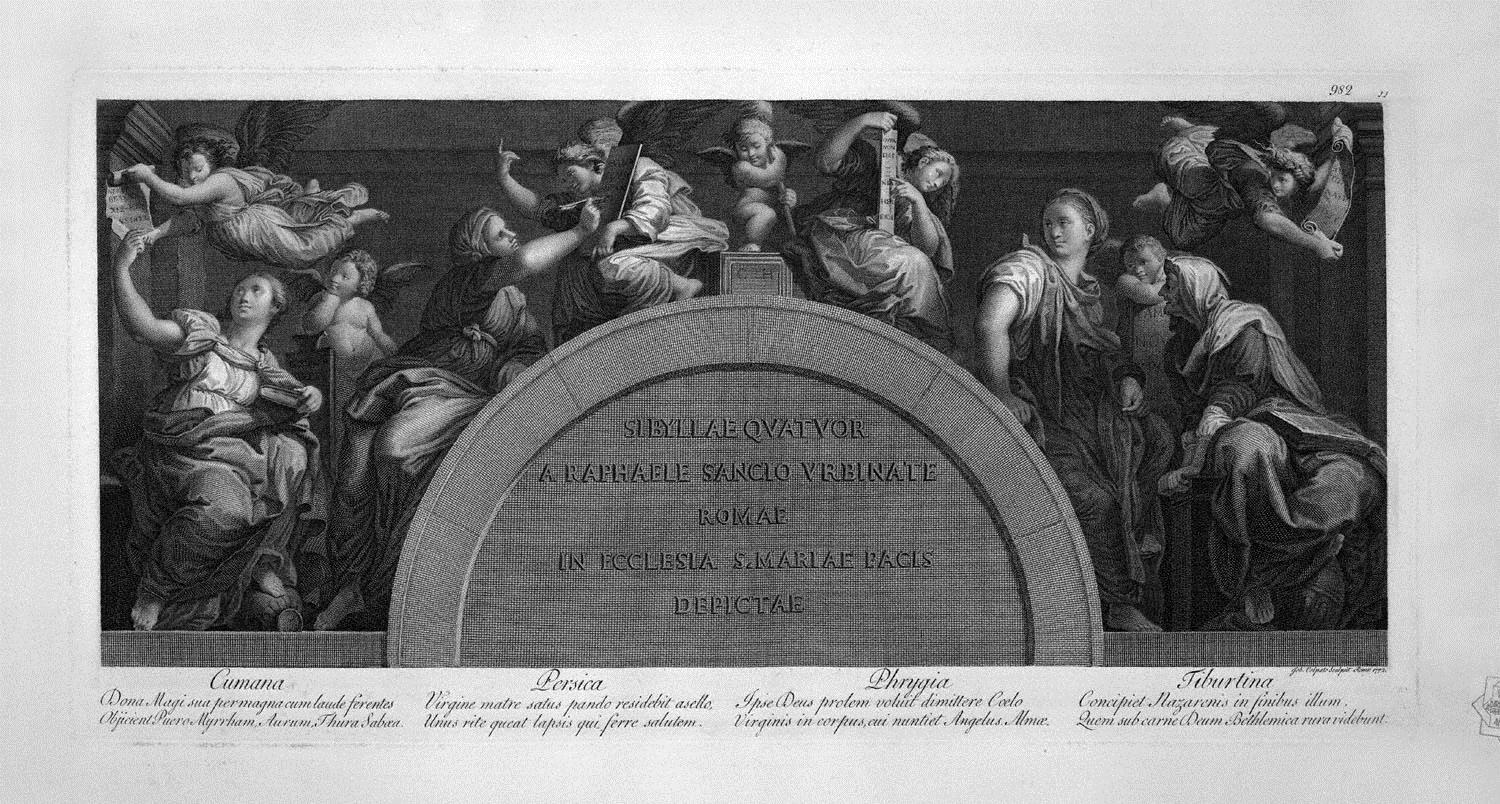 982
SIBYLLAE QVATVOR
A RAPHAELE SANCIO VRBINATE
ROMAE
IN ECCLESIA S. MARIAE PACIS
DEPICTAE
Joh. Volpato Sculpsit Romae 1772.
Cumana
Dona Magi sua permagna cum laude ferentes
Objicient Puero Myrrham, Aurum, Thura Sabea.
Persica
Virgine matre satus pando residebit asello,
Unus rite queat lapsis qui ferre salutem.
Phrygia
Ipse Deus prolem voluit dimittere Coelo
Virginis in corpus, cui nuntiet Angelus Almae.
Tiburtina
Concipiet Nazarenis in finibus illum,
Quem sub carne Deum Bethlemica rura videbunt.